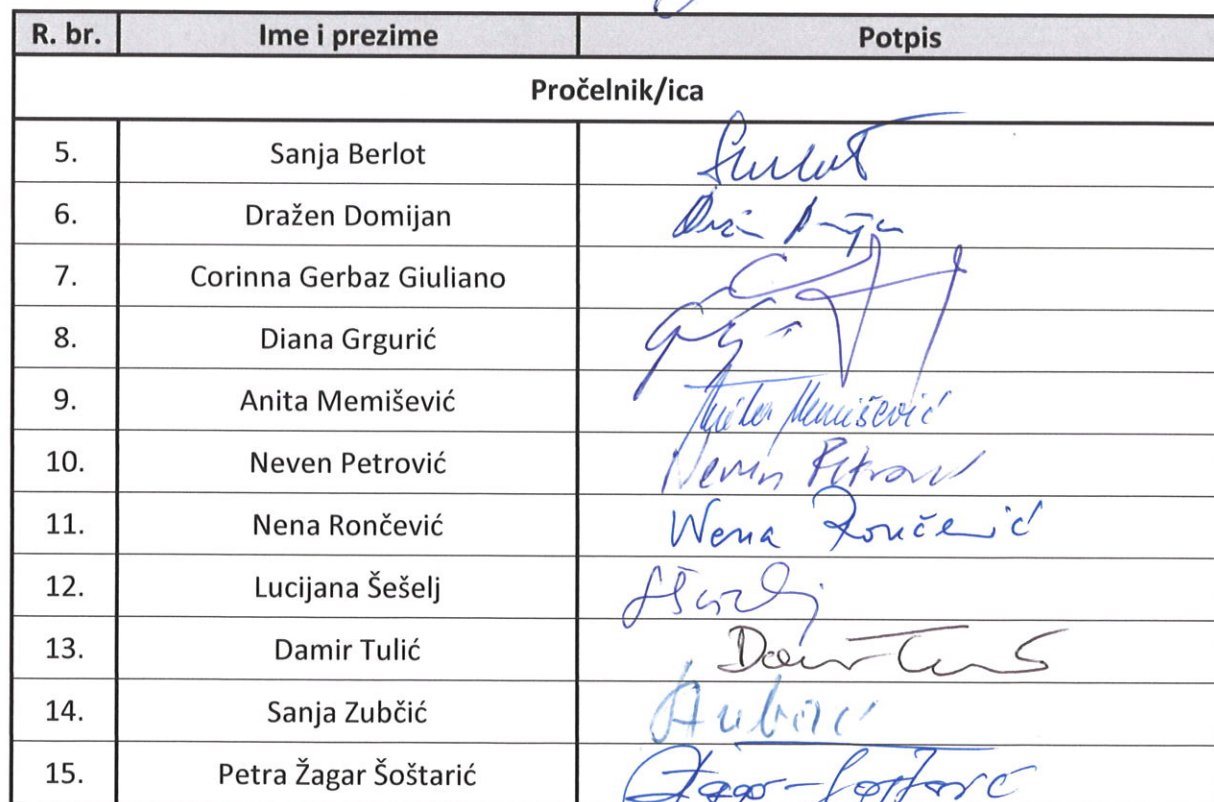 R. br. Ime i prezime Potpis
Pročelnik/ica
5. Sanja Berlot
6. Dražen Domijan
7. Corinna Gerbaz Giuliano
8. Diana Grgurić
9. Anita Memišević Anita Memišević
10. Neven Petrović Neven Petrov
11. Nena Rončević Nena Rončević
12. Lucijana Šešelj
13. Damir Tulić
14. Sanja Zubčić
15. Petra Žagar Šoštarić Žagar-Šoštarić